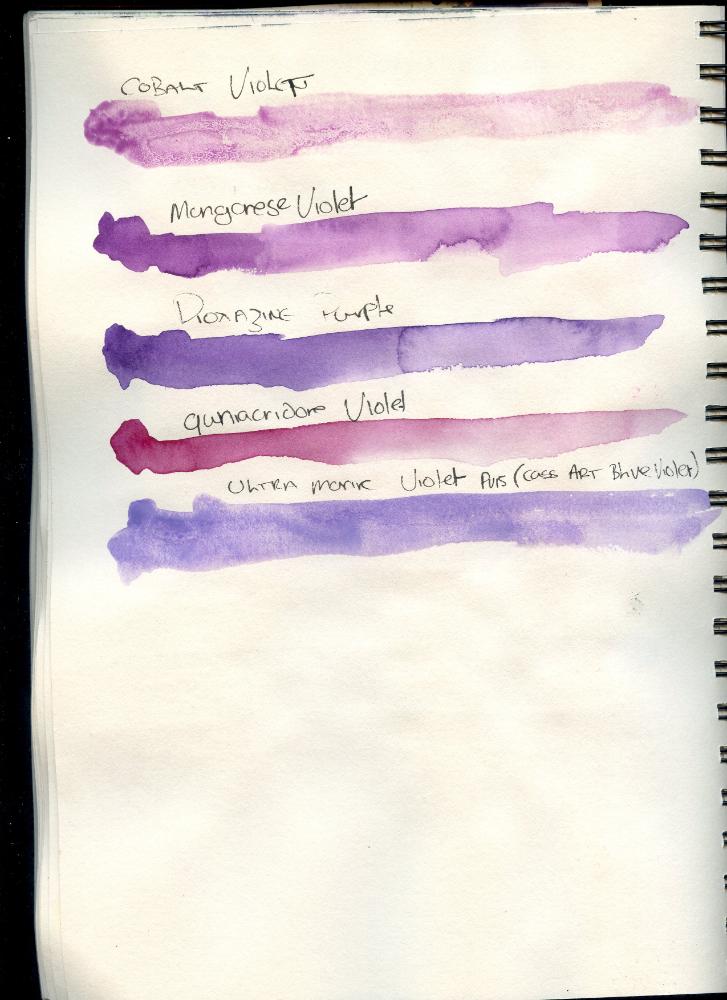 Cobalt Violet
Manganese Violet
Dioxazine Purple
Quniacridone Violet
Ultra marine Violet Purs (Cass Art Blue Violet)